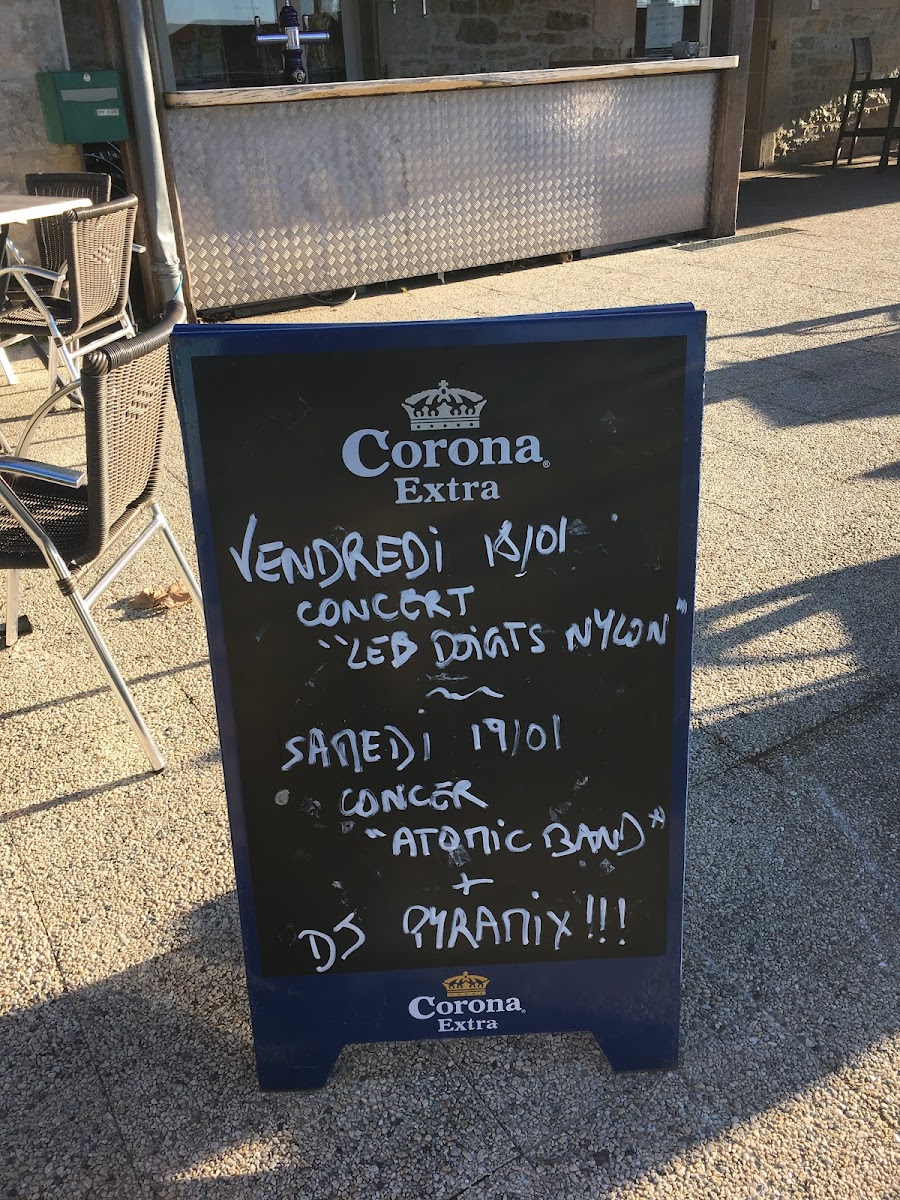 Corona
Extra
VENDREDi 18/01
CONCERT
"LES DOIGTS NYLON"
SAMEDi 19/01
CONCER
"ATOMiC BAND"
+
DJ PYRAMiX!!!
Corona
Extra